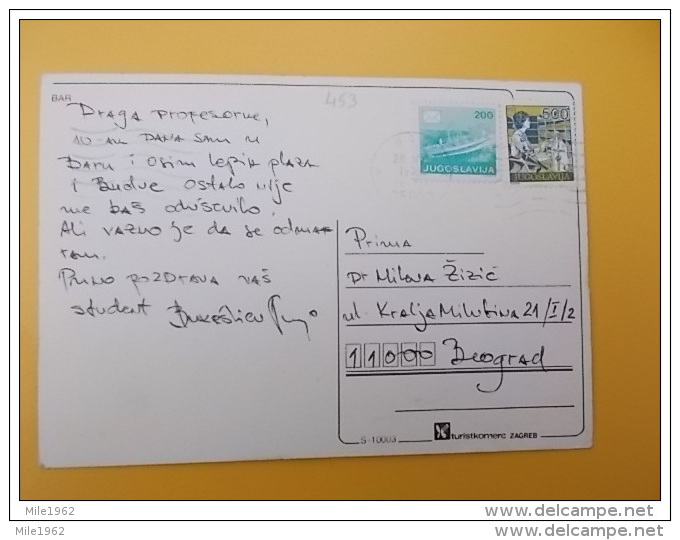 BAR
453
Draga profesorue,
10-ak DANA SAM u
Baru i osim lepih plaža
i Budve ostalo nije
me baš oduševilo.
Ali važno je da se odmaram.
Puno pozdrava vaš
student
200
JUGOSLAVIJA
500
JUGOSLAVIJA
Prima
Dr Milova Žizić
ul. Kralja Milutina 21/I/2
11000 Beograd
S-10003
turistkomerc ZAGREB
Mile1962
Mile1962
delcampe.net
delcampe.net